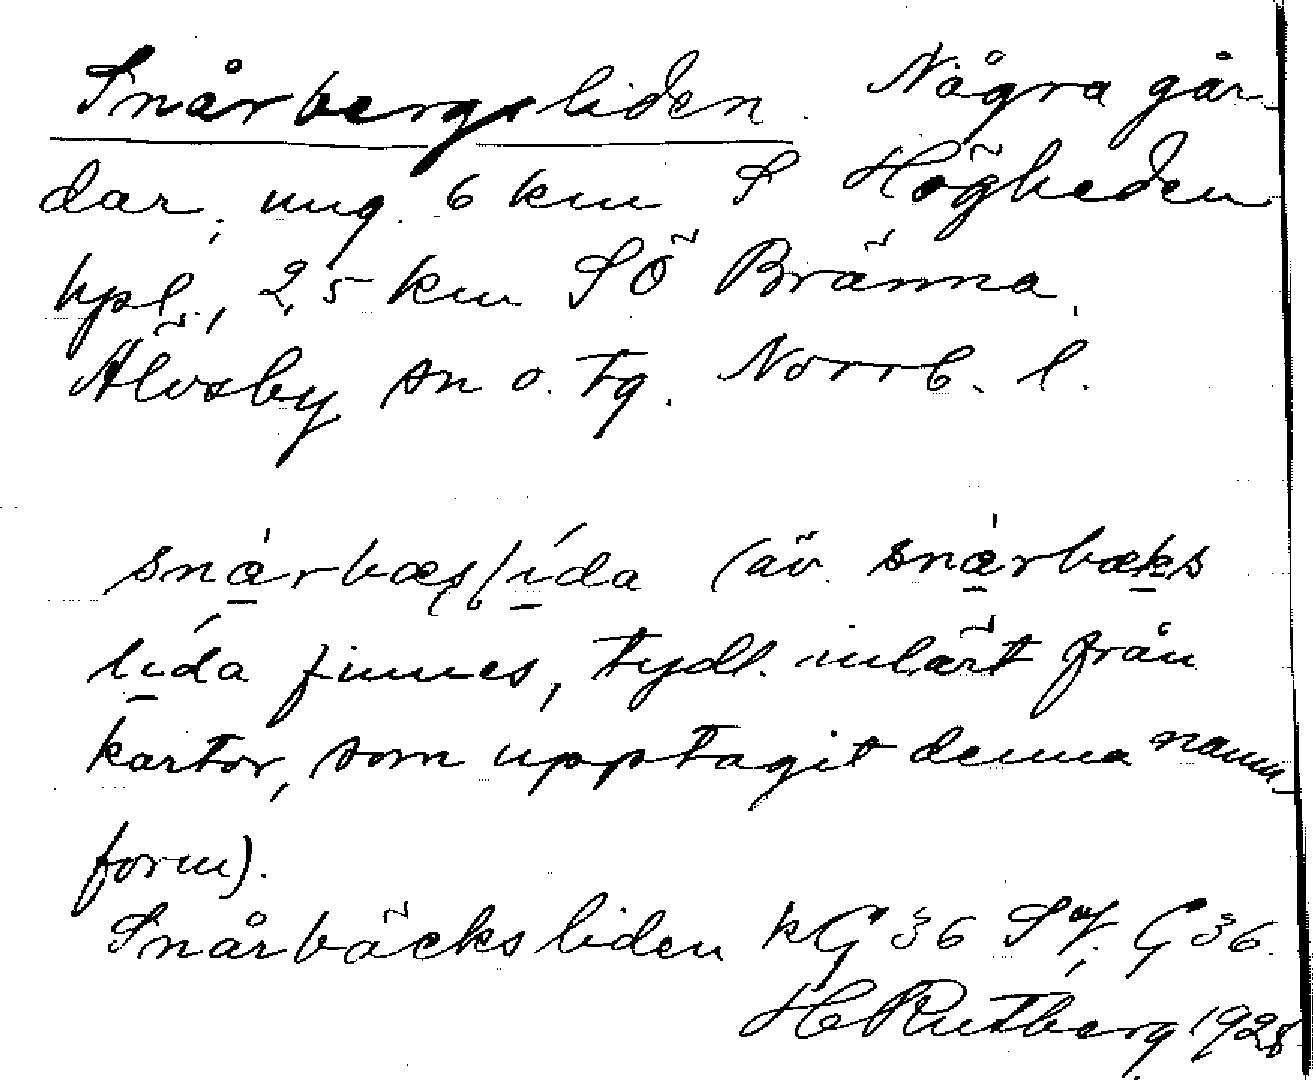 Snårbergsliden. Några går-
dar, ung. 6 km S Högheden
hpl., 2,5 km SÖ Bränna,
Älvsby sn o. tg. Norrb. l.
snårbæslida (äv. snårbæks
lida finnes, tydl. inlärt från
kartor, som upptagit denna namn-
form).
Snårbäcksliden kG 36 Sof. G 36.
H Rutberg 1928